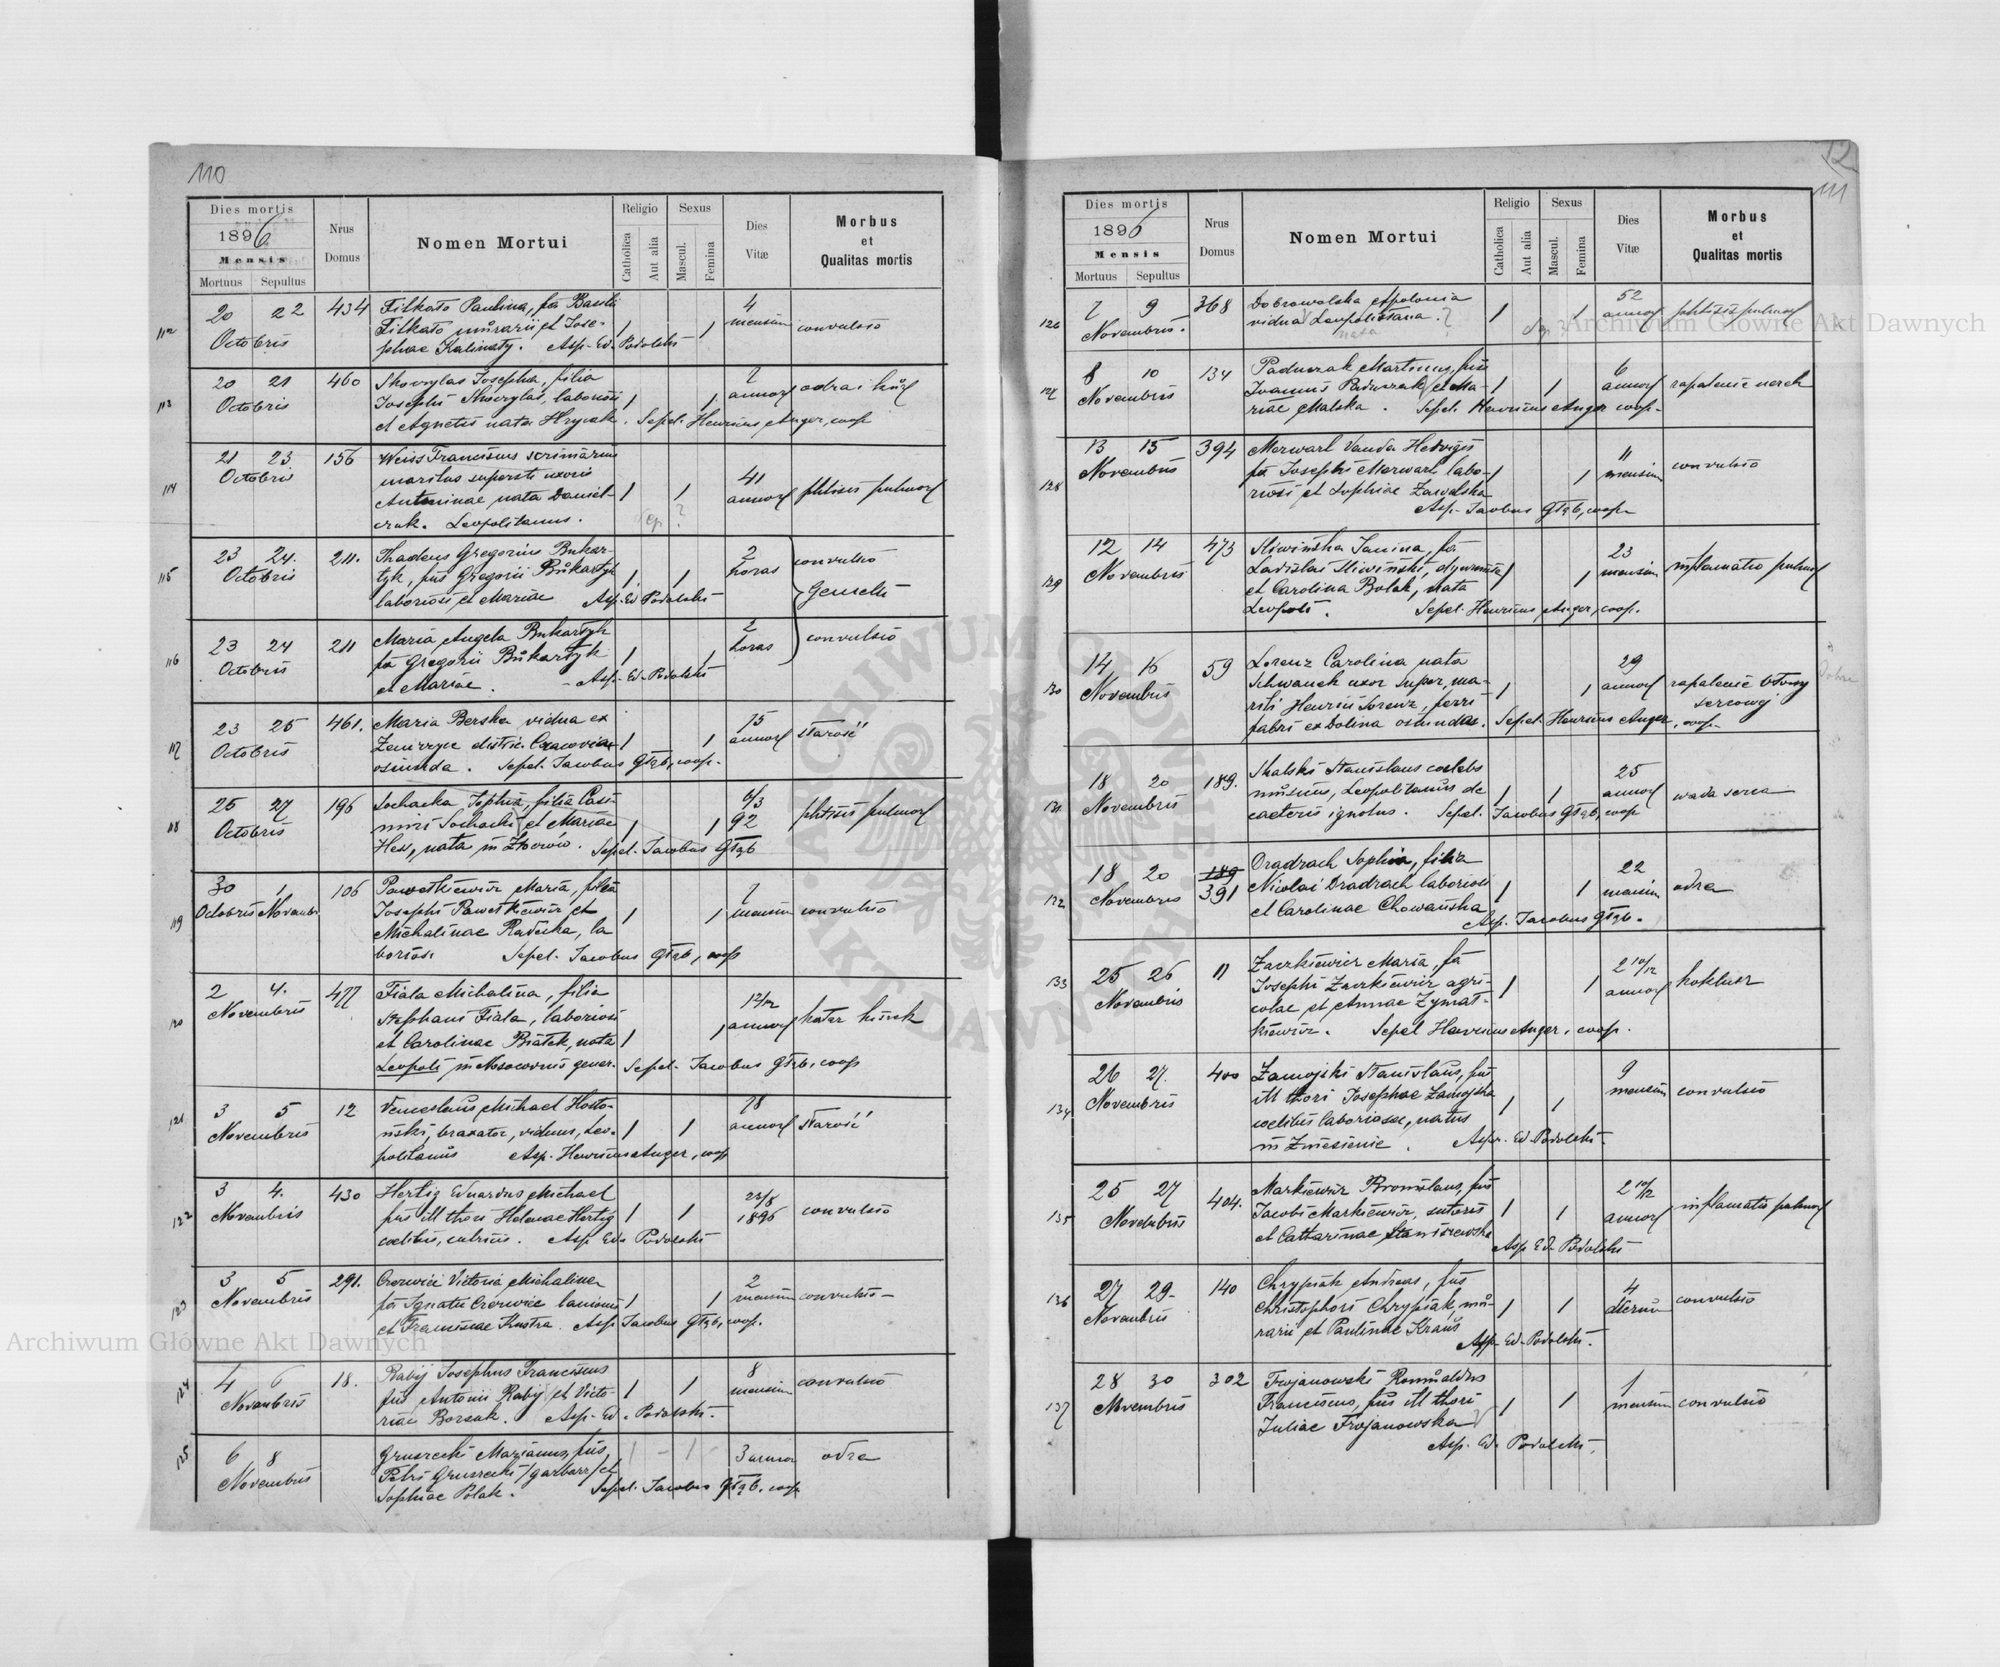 110
Dies mortis
1896
Mensis
Mortuus Sepultus
Nrus Domus
Nomen Mortui
Religio
Catholica
Aut alia
Sexus
Mascul.
Femina
Dies Vitæ
Morbus et Qualitas mortis
112 20 22 434 Filkato Paulina, fa Basili 4
Octobris Filkato murarii et Jose- 1 1 mensium convulsio
phae Kalinaty. Asp. Ed. Podolski
113 20 21 460 Josepha, filia 2
Octobris Josephi laboriosi 1 1 annor odra i kur
et Agnetis nata Hrycak. Sepel. Henricus Anger, coop
114 21 23 156 Weiss Franciscus scriniarius
Octobris maritus superst. uxoris 41
Antoninae nata Daniel- 1 1 annor phtisis pulmor
czuk. Leopolitanus.
115 23 24. 211. Thadeus Gregorius Bukar- 2 convulsio
Octobris tyk, fius Gregorii Bukartyk 1 1 horas
laboriosi et Mariae Asp. Ed Podolski Gemelli
116 23 24 211 Maria Angela Bukartyk 2
Octobris fa Gregorii Bukartyk 1 1 horas convulsio
et Mariae. Asp. Ed. Podolski
117 23 25 461. Maria Berska vidua ex 75
Octobris distric. Cracoviae 1 1 annor starość
oriunda. Sepel. Jacobus Głąb, coop.
118 25 27 196 Sochacka Sophia, filia Casi- 6/3
Octobris miri Sochacki et Mariae 1 1 92 phtisis pulmor
Hess, nata in Zborów. Sepel. Jacobus Głąb
119 30 1 106 Pawełkiewicz Maria, filia 7
Octobris Novembr. Josephi Pawełkiewicz et 1 1 mensium convulsio
Michalinae Radecka, la
boriosi Sepel. Jacobus Głąb, coop
120 2 4. 477 Fiala Michalina, filia
Novembris Stephani Fiala, laboriosi annor katar kiszek
et Carolinae Białek, nata 1 1
Leopoli in Nosocomis gener. Sepel. Jacobus Głąb, coop
121 3 5 12 Venceslaus Michael 78
Novembris braxator, viduus, Leo- 1 1 annor starość
politanus Asp. Henricus Anger, coop
122 3 4. 430 Hertig Eduardus Michael 23/8
Novembris fius ill thori Helenae Hertig 1 1 1896 convulsio
coelibis, Asp Ed. Podolski
123 3 5 291. Victoria Michalina 2
Novembris fa Ignatii lanionis 1 1 mensium convulsio
et Franciscae Kustra. Asp Jacobus Głąb, coop.
124 4 6 18. Rabij Josephus Franciscus 8
Novembris fius Antonii Rabij et Victo- 1 1 mensium convulsio
riae Borsuk. Asp. Ed. Podolski.
125 6 8 Gruszecki Marjanus, fius 1 1 3 annor odra
Novembris Petri Gruszecki /garbarz/ et
Sophiae Polak. Sepel. Jacobus Głąb. coop
12
111
Dies mortis
1896
Mensis
Mortuus Sepultus
Nrus Domus
Nomen Mortui
Religio
Catholica
Aut alia
Sexus
Mascul.
Femina
Dies Vitæ
Morbus et Qualitas mortis
126 7 9 368 Dobrowolska Apolonia 52
Novembris. vidua Leopolitana. ? 1 1 annor phtisis pulmor
nata
127 8 10 134 Paduszak Martinus, fius 6
Novembris Joannis Paduszak et Ma- 1 1 annor zapalenie nerek
riae Malska. Sepel. Henricus Anger coop.
128 13 15 394 Merwart Vanda Hedvigis 11
Novembris fa Josephi Merwart labo- 1 1 mensium convulsio
riosi et Sophiae Zawalska
Asp. Jacobus Głąb, coop.
129 12 14 473 Śliwińska Janina, fa 23
Novembris Ladislai Śliwiński, 1 1 mensium inflamatio pulmor
et Carolina Bolek, nata
Leopoli. Sepel. Henricus Anger, coop.
130 14 16 59 Lorenz Carolina nata 29
Novembris Schwanek uxor super. ma- 1 1 annor zapalenie błony
riti Henrici Lorenz, ferri sercowej
fabri ex Dolina oriundae. Sepel. Henricus Anger, coop.
131 18 20 189. Skalski Stanislaus coelebs 25
Novembris musicus, Leopolitanus de 1 1 annor wada serca
caeteris ignotus. Sepel. Jacobus Głąb, coop
132 18 20 189 Dradrach Sophia, filia 22
Novembris 391 Nicolai Dradrach laboriosi 1 1 mensium odra
et Carolinae Chowańska
Asp. Jacobus Głąb.
133 25 26 11 Zaczkiewicz Maria, fa 2 10/12
Novembris Josephi Zaczkiewicz agri- 1 1 annor koklusz
colae et Annae Zymał-
kiewicz. Sepel Henricus Anger, coop.
134 26 27. 400 Zamojski Stanislaus, fius 9
Novembris ill thori Josephae Zamojska 1 1 mensium convulsio
coelibis laboriosae, natus
in Zniesienie. Asp. Ed Podolski.
135 25 27 404. Markiewicz Bronislaus, fius 2 10/12
Novembris Jacobi Markiewicz, sutoris 1 1 annor inflamatio pulmor
et Catharinae Staniszewska
Asp Ed. Podolski
136 27 29- 140 Chrypiak Andreas, fius 4
Novembris Christophori Chrypiak, mu- 1 1 dierum convulsio
rarii et Paulinae Kraus
Asp. Ed. Podolski.
137 28 30 302 Trojanowski Romualdus 1
Novembris Franciscus, fius ill thori 1 1 mensium convulsio
Juliae Trojanowska
Asp. Ed. Podolski.
Archiwum Główne Akt Dawnych
Archiwum Główne Akt Dawnych
ARCHIWUM GŁÓWNE AKT DAWNYCH